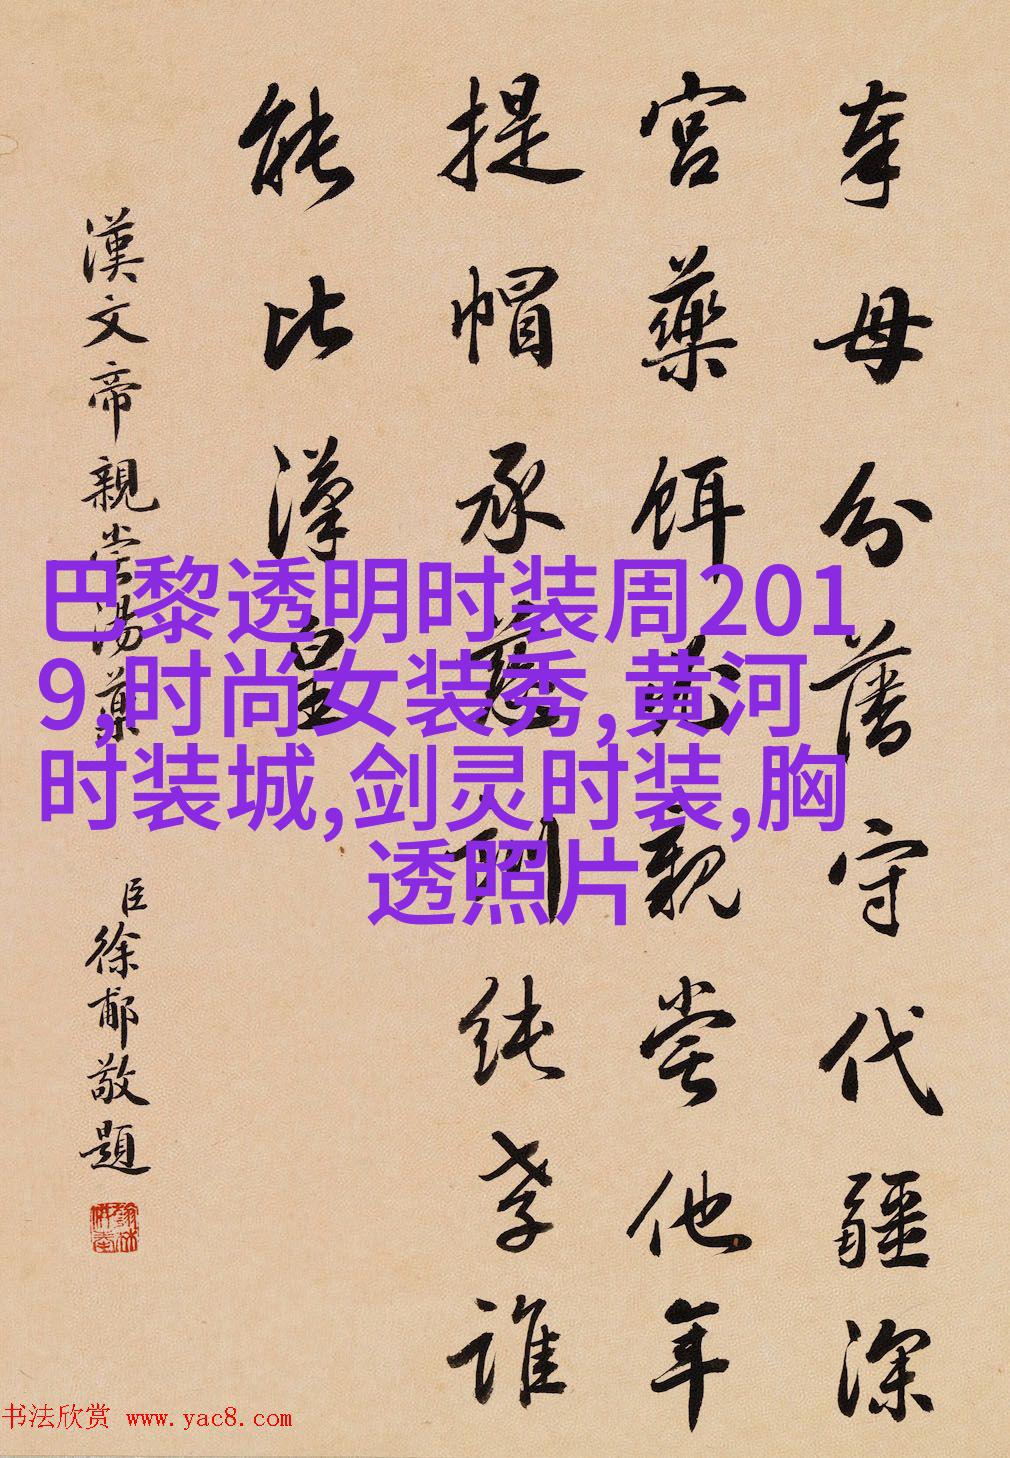 奉母分藩守代疆深
宮藥餌親嘗他年
提帽承慈純孝誰
能比漢皇
漢文帝親嘗湯藥
臣徐郙敬題
巴黎透明时装周201
9,时尚女装秀,黄河
时装城,剑灵时装,胸
透照片
书法欣赏 www.yac8.com